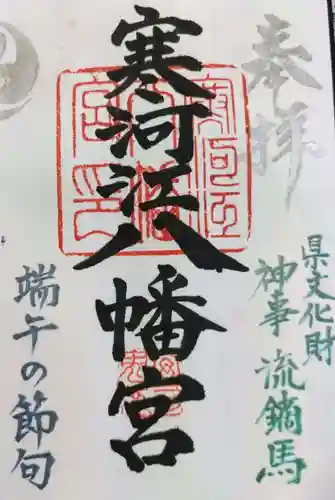 奉拝
県文化財
神事流鏑馬
寒河江八幡宮
端午の節句